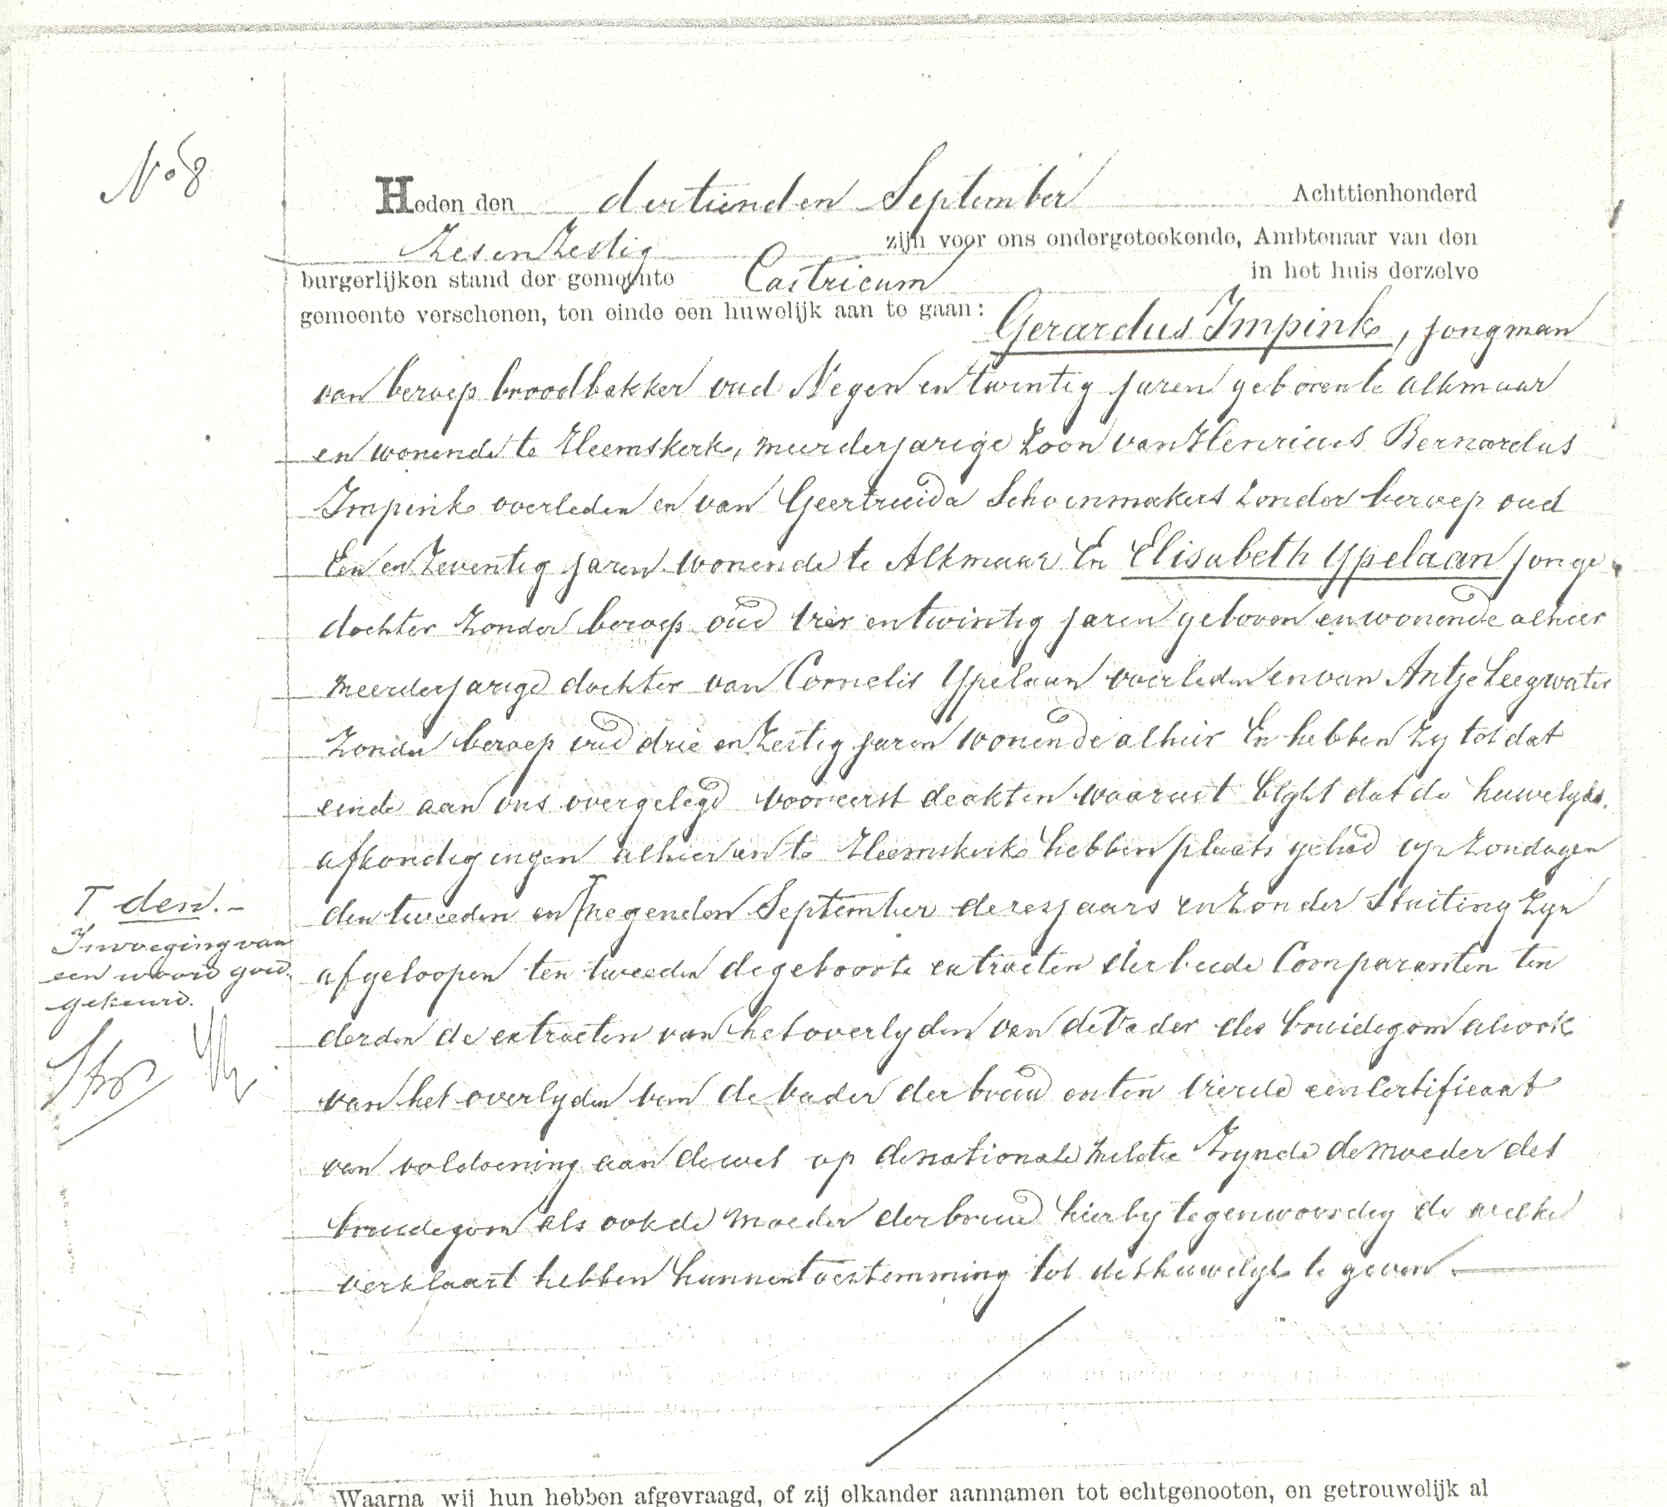 No 8
Heden den dertienden September Achttienhonderd
Zes en Zestig zijn voor ons ondergeteekende, Ambtenaar van den
burgerlijken stand der gemeente Castricum in het huis derzelve
gemeente verschenen, ten einde een huwelijk aan te gaan:
Gerardus Impink, jongman
van beroep broodbakker oud Negen en twintig jaren geboren te Alkmaar
en wonende te Heemskerk, meerderjarige Zoon van Henricus Bernardus
Impink overleden en van Geertruida Schoenmakers Zonder beroep oud
Een en Zeventig jaren wonende te Alkmaar En Elisabeth Ypelaan jonge
dochter Zonder beroep oud vier en twintig jaren geboren en wonende alhier
meerderjarige dochter van Cornelis Ypelaan overleden en van Antje Leegwater
Zonder beroep oud drie en Zestig jaren wonende alhier En hebben Zy tot dat
einde aan ons overgelegd vooreerst de akten waaruit blykt dat de huwelyks
afkondigingen alhier en te Heemskerk hebben plaats gehad op Zondagen
den tweeden en negenden September dezes jaars en Zonder Stuiting Zyn
afgeloopen ten tweeden de geboorte extracten der beide Comparanten ten
derden de extracten van het overlyden van de Vader des bruidegom alsook
van het overlyden van de vader der bruid en ten vierde een Certificaat
van voldoening aan de wet op de nationale Militie Zynde de moeder des
bruidegom als ook de Moeder der bruid hierby tegenwoordig de welke
verklaart hebben hunne toestemming tot dit huwelyk te geven
T den.-
Invoeging van
een woord goed
gekeurd.
Waarna wij hun hebben afgevraagd, of zij elkander aannamen tot echtgenooten, en getrouwelijk al